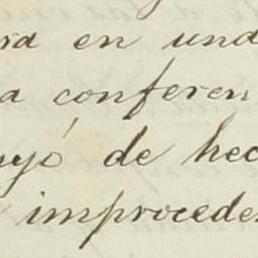 ra en und
a conferen
uyó de hec
improceder